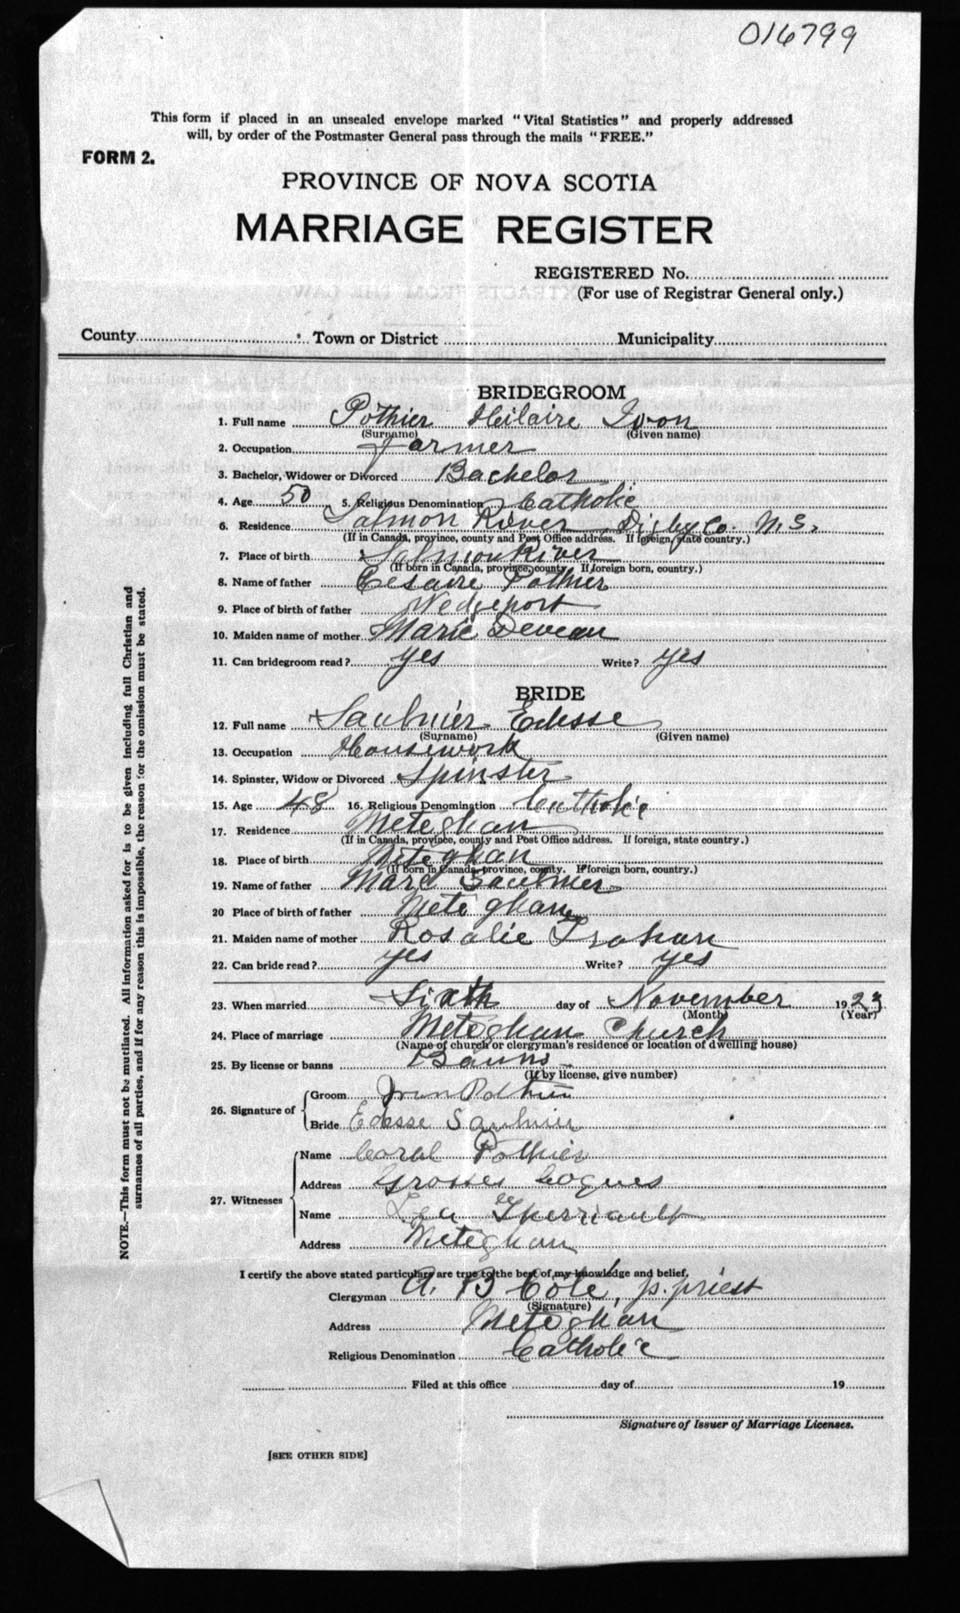 016799
This form if placed in an unsealed envelope marked "Vital Statistics" and properly addressed
will, by order of the Postmaster General pass through the mails "FREE."
FORM 2.
PROVINCE OF NOVA SCOTIA
MARRIAGE REGISTER
REGISTERED No.
(For use of Registrar General only.)
County Town or District Municipality
BRIDEGROOM
1. Full name Pothier Hilaire Ivon
(Surname) (Given name)
2. Occupation farmer
3. Bachelor, Widower or Divorced Bachelor
4. Age 50 5. Religious Denomination Catholic
6. Residence Salmon River Digby Co. N.S.
(If in Canada, province, county and Post Office address. If foreign, state country.)
7. Place of birth Salmon River
(If born in Canada, province, county. If foreign born, country.)
8. Name of father Cesaire Pothier
9. Place of birth of father Wedgeport
10. Maiden name of mother Marie Deveau
11. Can bridegroom read? yes Write? yes
BRIDE
12. Full name Saulnier Edesse
(Surname) (Given name)
13. Occupation Housework
14. Spinster, Widow or Divorced Spinster
15. Age 48 16. Religious Denomination Catholic
17. Residence Meteghan
(If in Canada, province, county and Post Office address. If foreign, state country.)
18. Place of birth Meteghan
(If born in Canada, province, county. If foreign born, country.)
19. Name of father Marc Saulnier
20 Place of birth of father Meteghan
21. Maiden name of mother Rosalie Trahan
22. Can bride read? yes Write? yes
23. When married Sixth day of November 1923
(Month) (Year)
24. Place of marriage Meteghan Church
(Name of church or clergyman's residence or location of dwelling house)
25. By license or banns Banns
(If by license, give number)
26. Signature of Groom Ivon Pothier
Bride Edesse Saulnier
27. Witnesses Name Pothier
Address Grosses Coques
Name Therriault
Address Meteghan
I certify the above stated particulars are true to the best of my knowledge and belief,
Clergyman A. B Côté, p. priest
(Signature)
Address Meteghan
Religious Denomination Catholic
Filed at this office day of 19
Signature of Issuer of Marriage Licenses.
[SEE OTHER SIDE]
NOTE.—This form must not be mutilated. All information asked for is to be given including full Christian and
surnames of all parties, and if for any reason this is impossible, the reason for the omission must be stated.